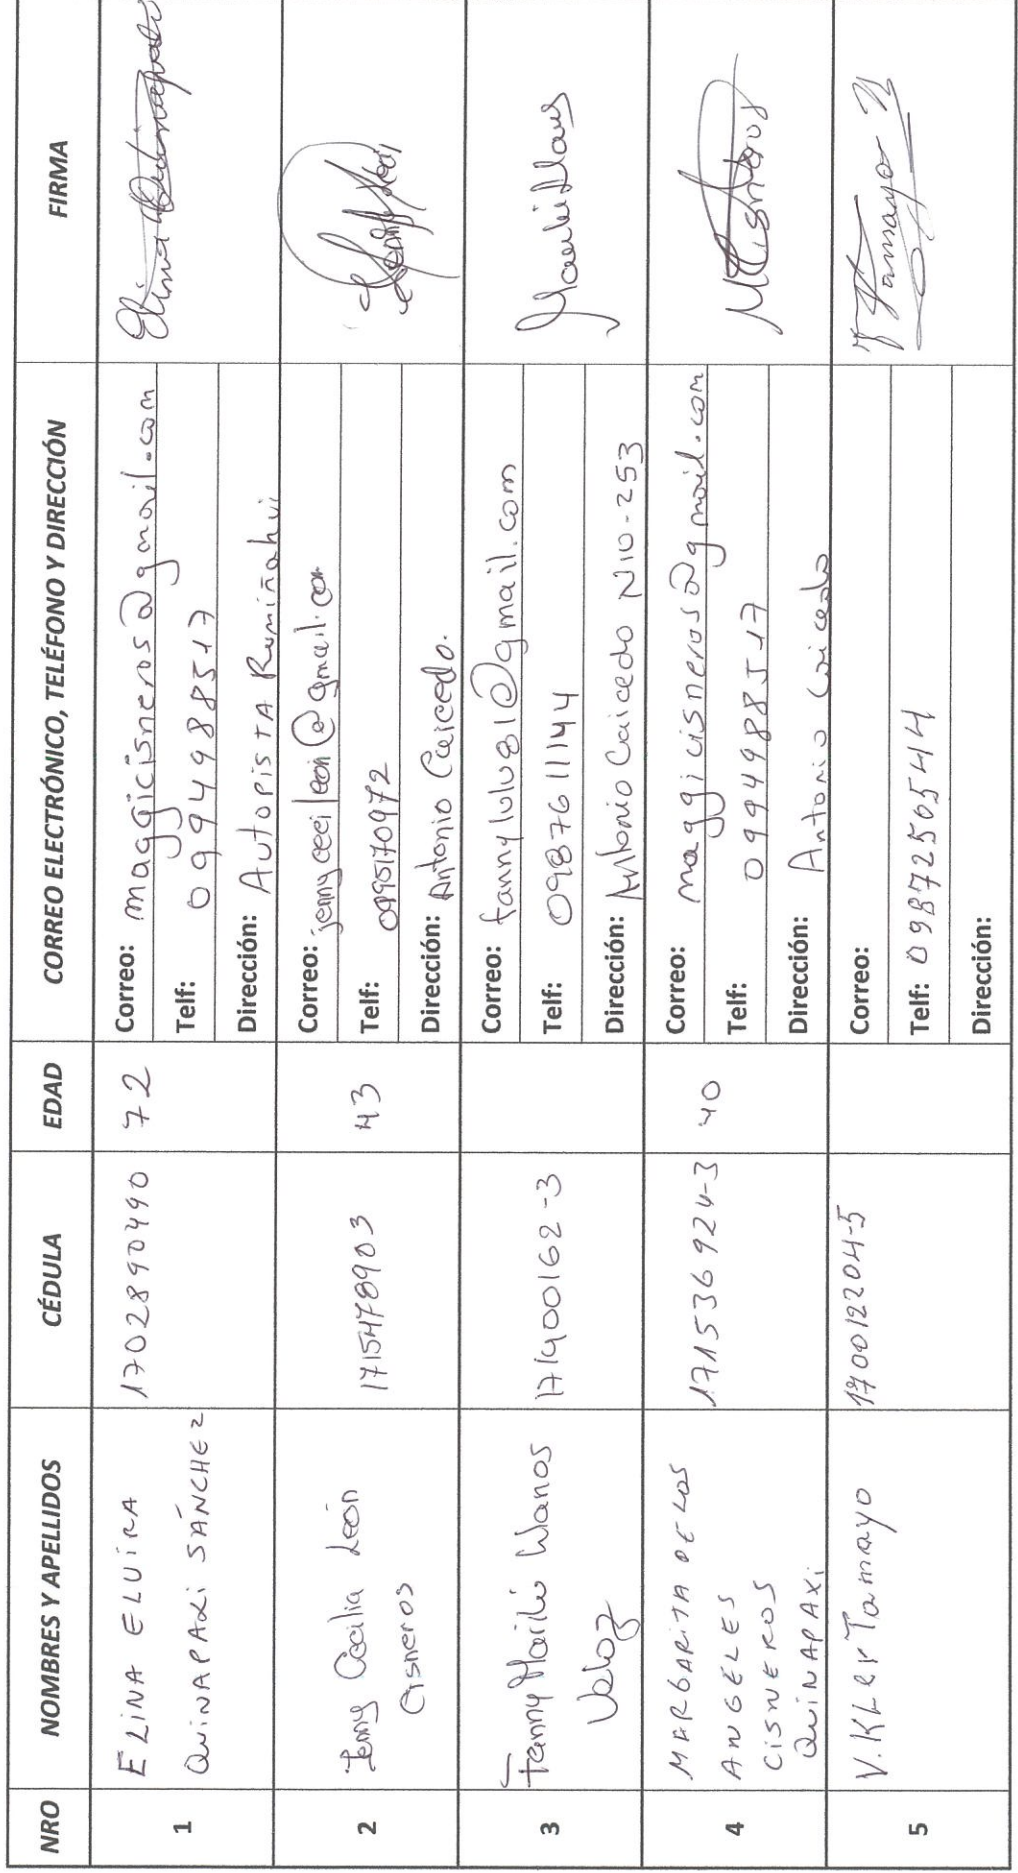 NRO NOMBRES Y APELLIDOS CÉDULA EDAD CORREO ELECTRÓNICO, TELÉFONO Y DIRECCIÓN FIRMA
1
ELINA ELVIRA
QUINAPAXI SÁNCHEZ
1702890490
72
Correo: maggicisneros@gmail.com
Telf: 0994988517
Dirección: Autopista Rumiñahui
2
Jenny Cecilia León
Cisneros
1715478903
43
Correo: jennyceci leon@gmail.com
Telf: 0995170972
Dirección: Antonio Caicedo.
3
Fanny Marilú Llanos
Veloz
171400162-3
Correo: fannylulu81@gmail.com
Telf: 0987611144
Dirección: Antonio Caicedo N10-253
4
MARGARITA DE LOS
ANGELES
CISNEROS
QUINAPAXI
171536924-3
40
Correo: maggicisneros@gmail.com
Telf: 0994988517
Dirección: Antonio Caicedo
MCisneros
5
V. Kler Tamayo
170012204-5
Correo:
Telf: 0987250544
Dirección:
Tamayo